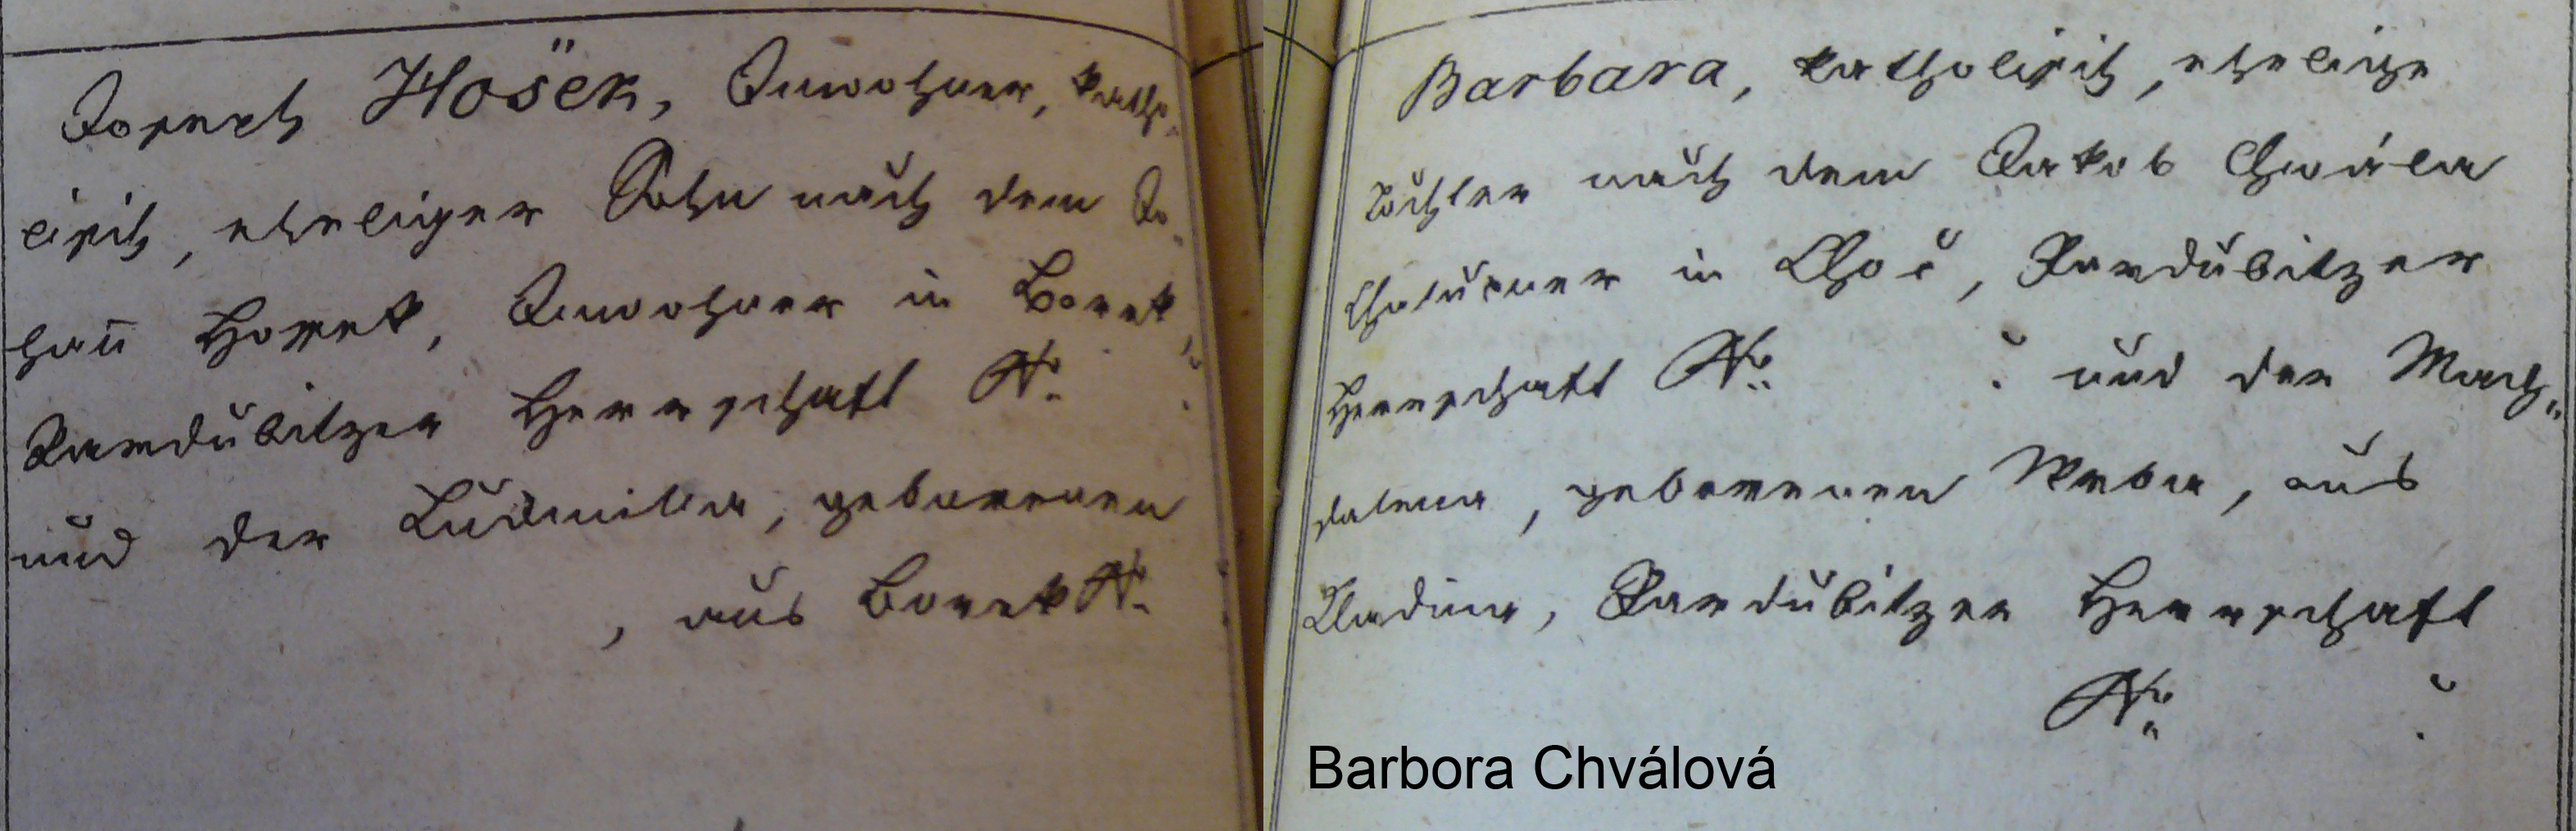 Joseph Hošek, Inwohner, katho-
lisch, eheliger Sohn nach dem Jo-
hañ Hossek, Inwohner in Borek,
Pardubitzer Herrschaft N:
und der Ludmilla, geborenen
, aus Borek N:
Barbara, katholisch, ehelige
Tochter nach dem Jakob Chwála
Chalupner in Pardubitzer
Herrschaft N: und der Mag-
dalena, geborenen aus
Pardubitzer Herrschaft
N:
Barbora Chválová